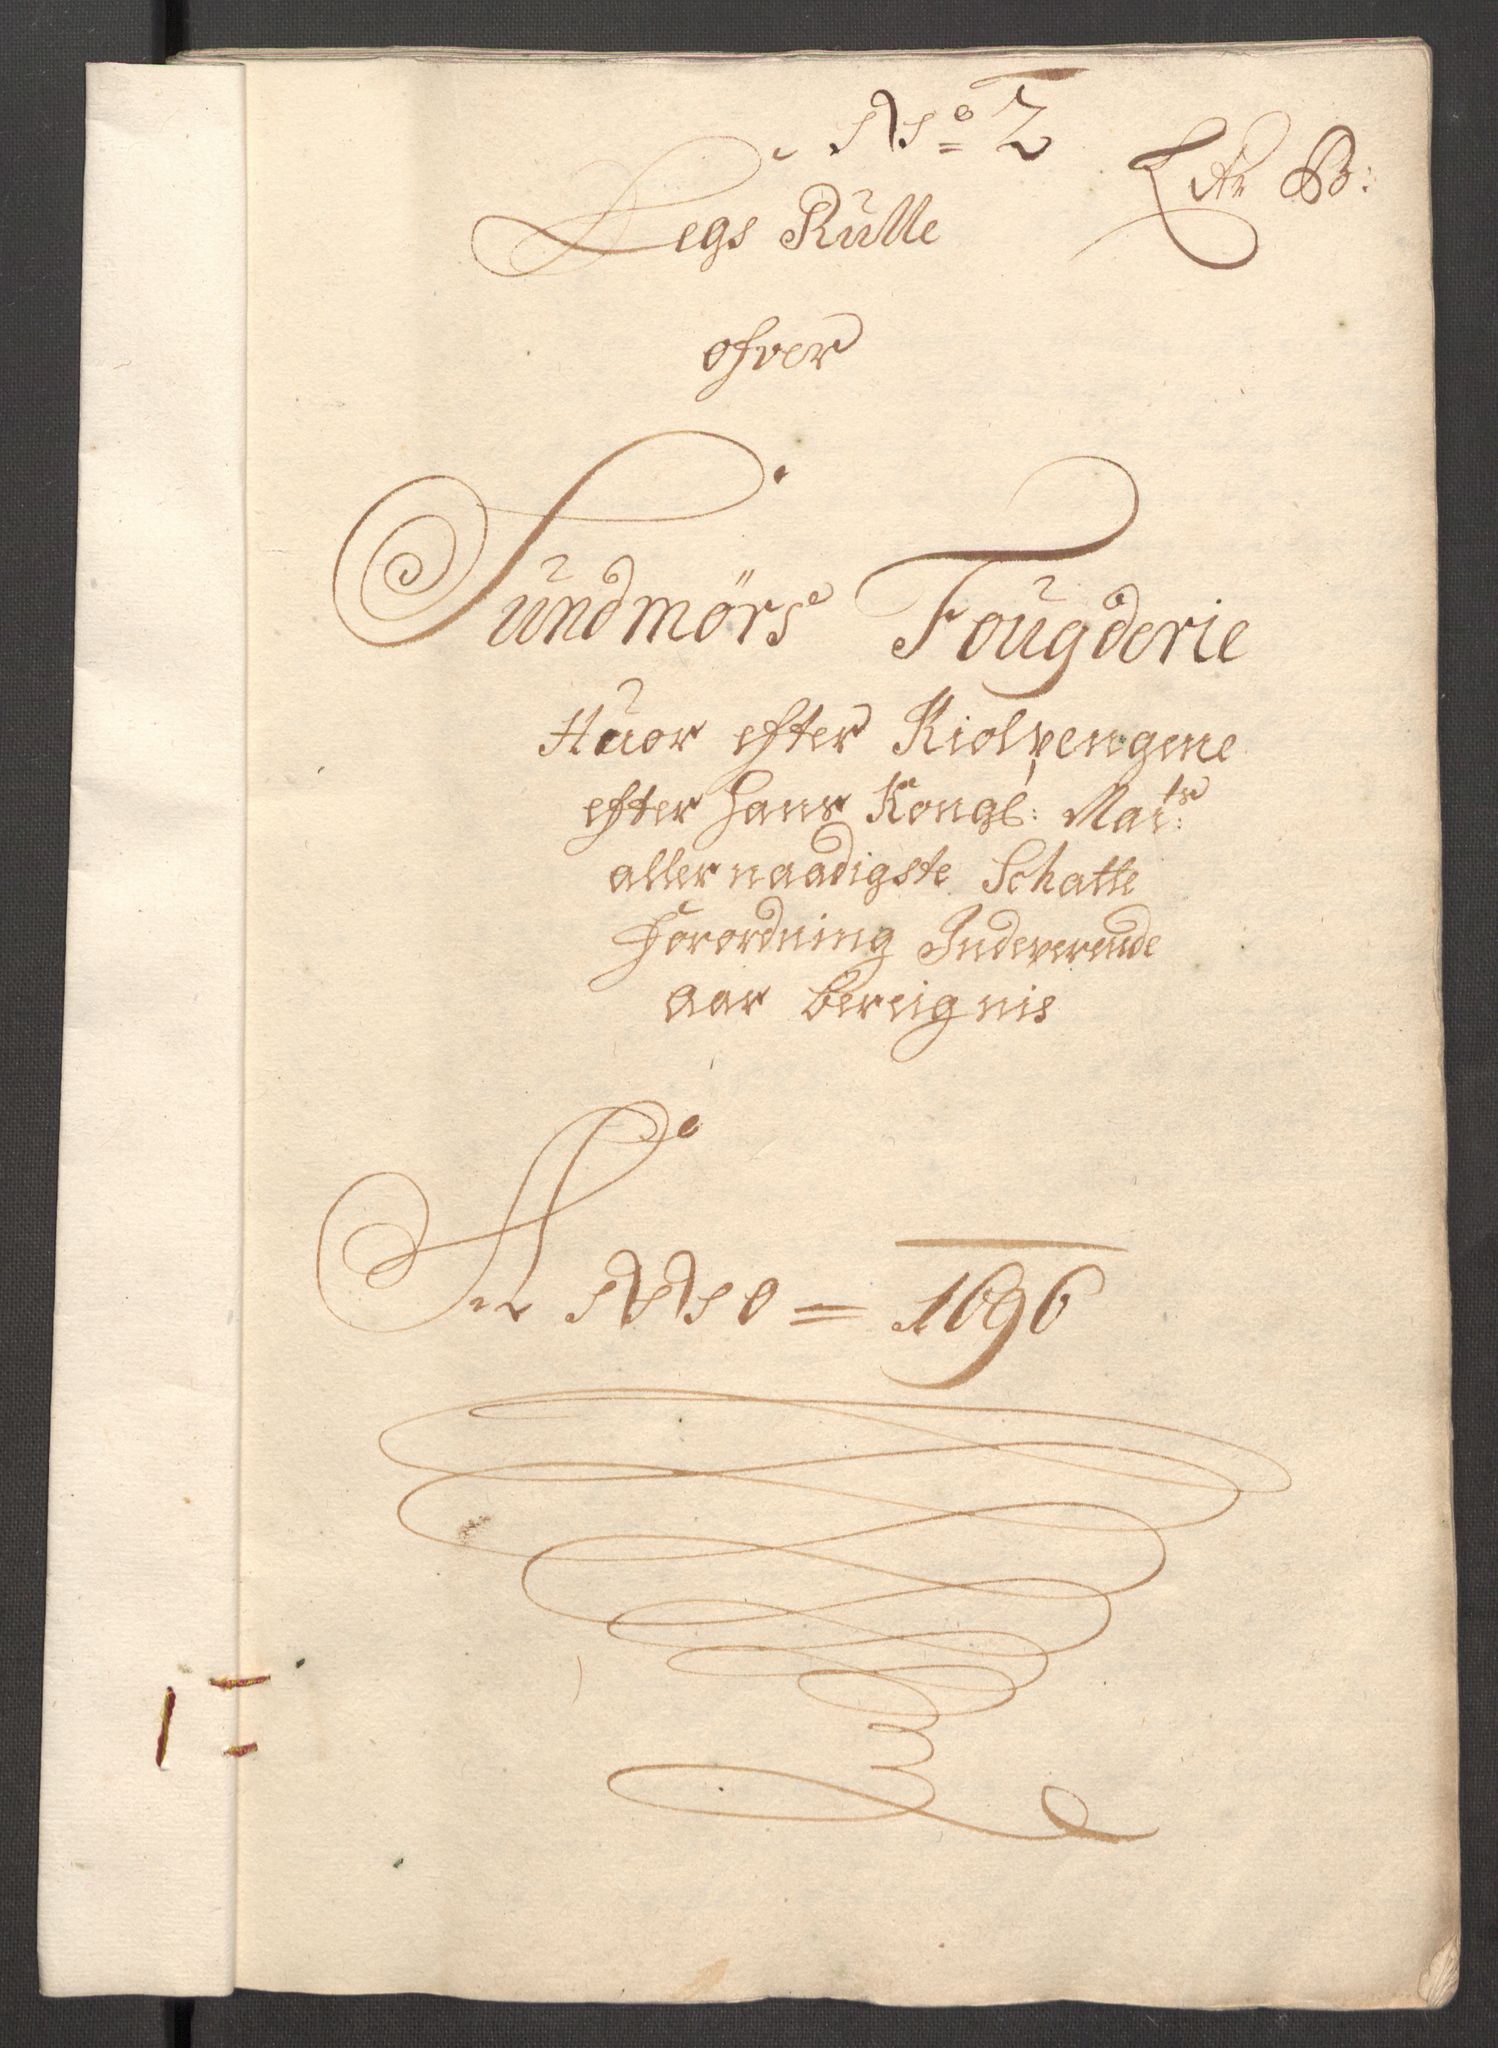 No 2
Ltr B:
Legs Rulle
ofver
Sundmörs Fougderie
Huor efter Kiolpengene
efter Hans Kongl: Maits:
allernaadigste Schatte
Forordning Indeverende
aar bereignis
Anno = 1696